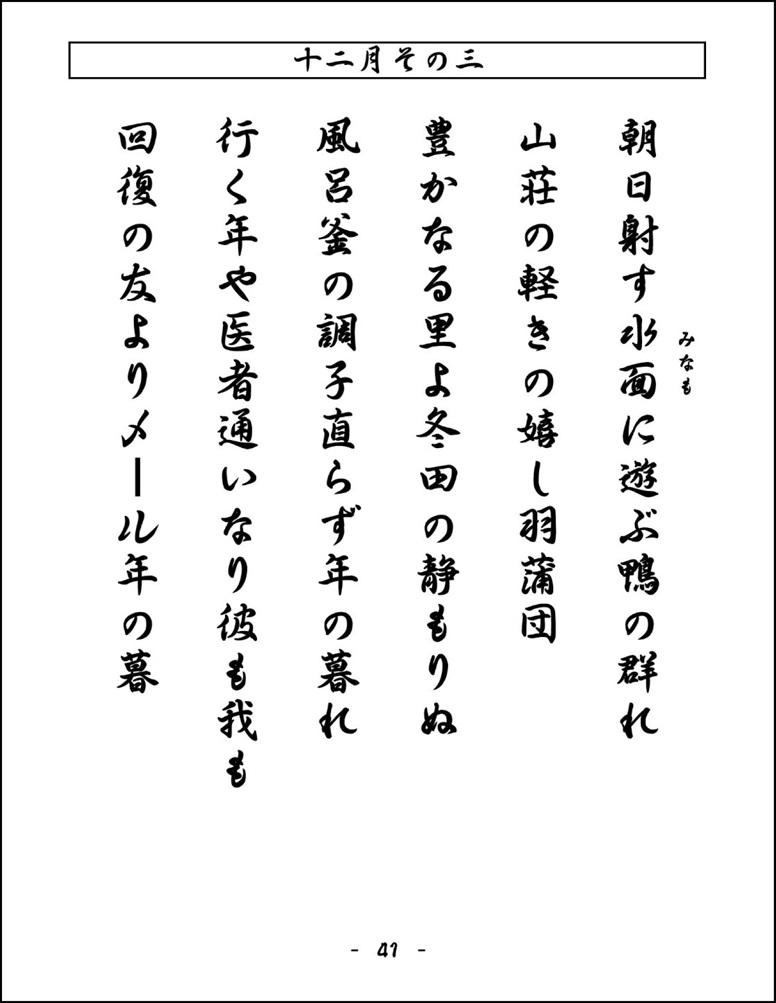 十二月その三
朝日射す水面に遊ぶ鴨の群れ
みなも
山荘の軽きの嬉し羽蒲団
豊かなる里よ冬田の静もりぬ
風呂釜の調子直らず年の暮れ
行く年や医者通いなり彼も我も
回復の友よりメール年の暮
- 41 -